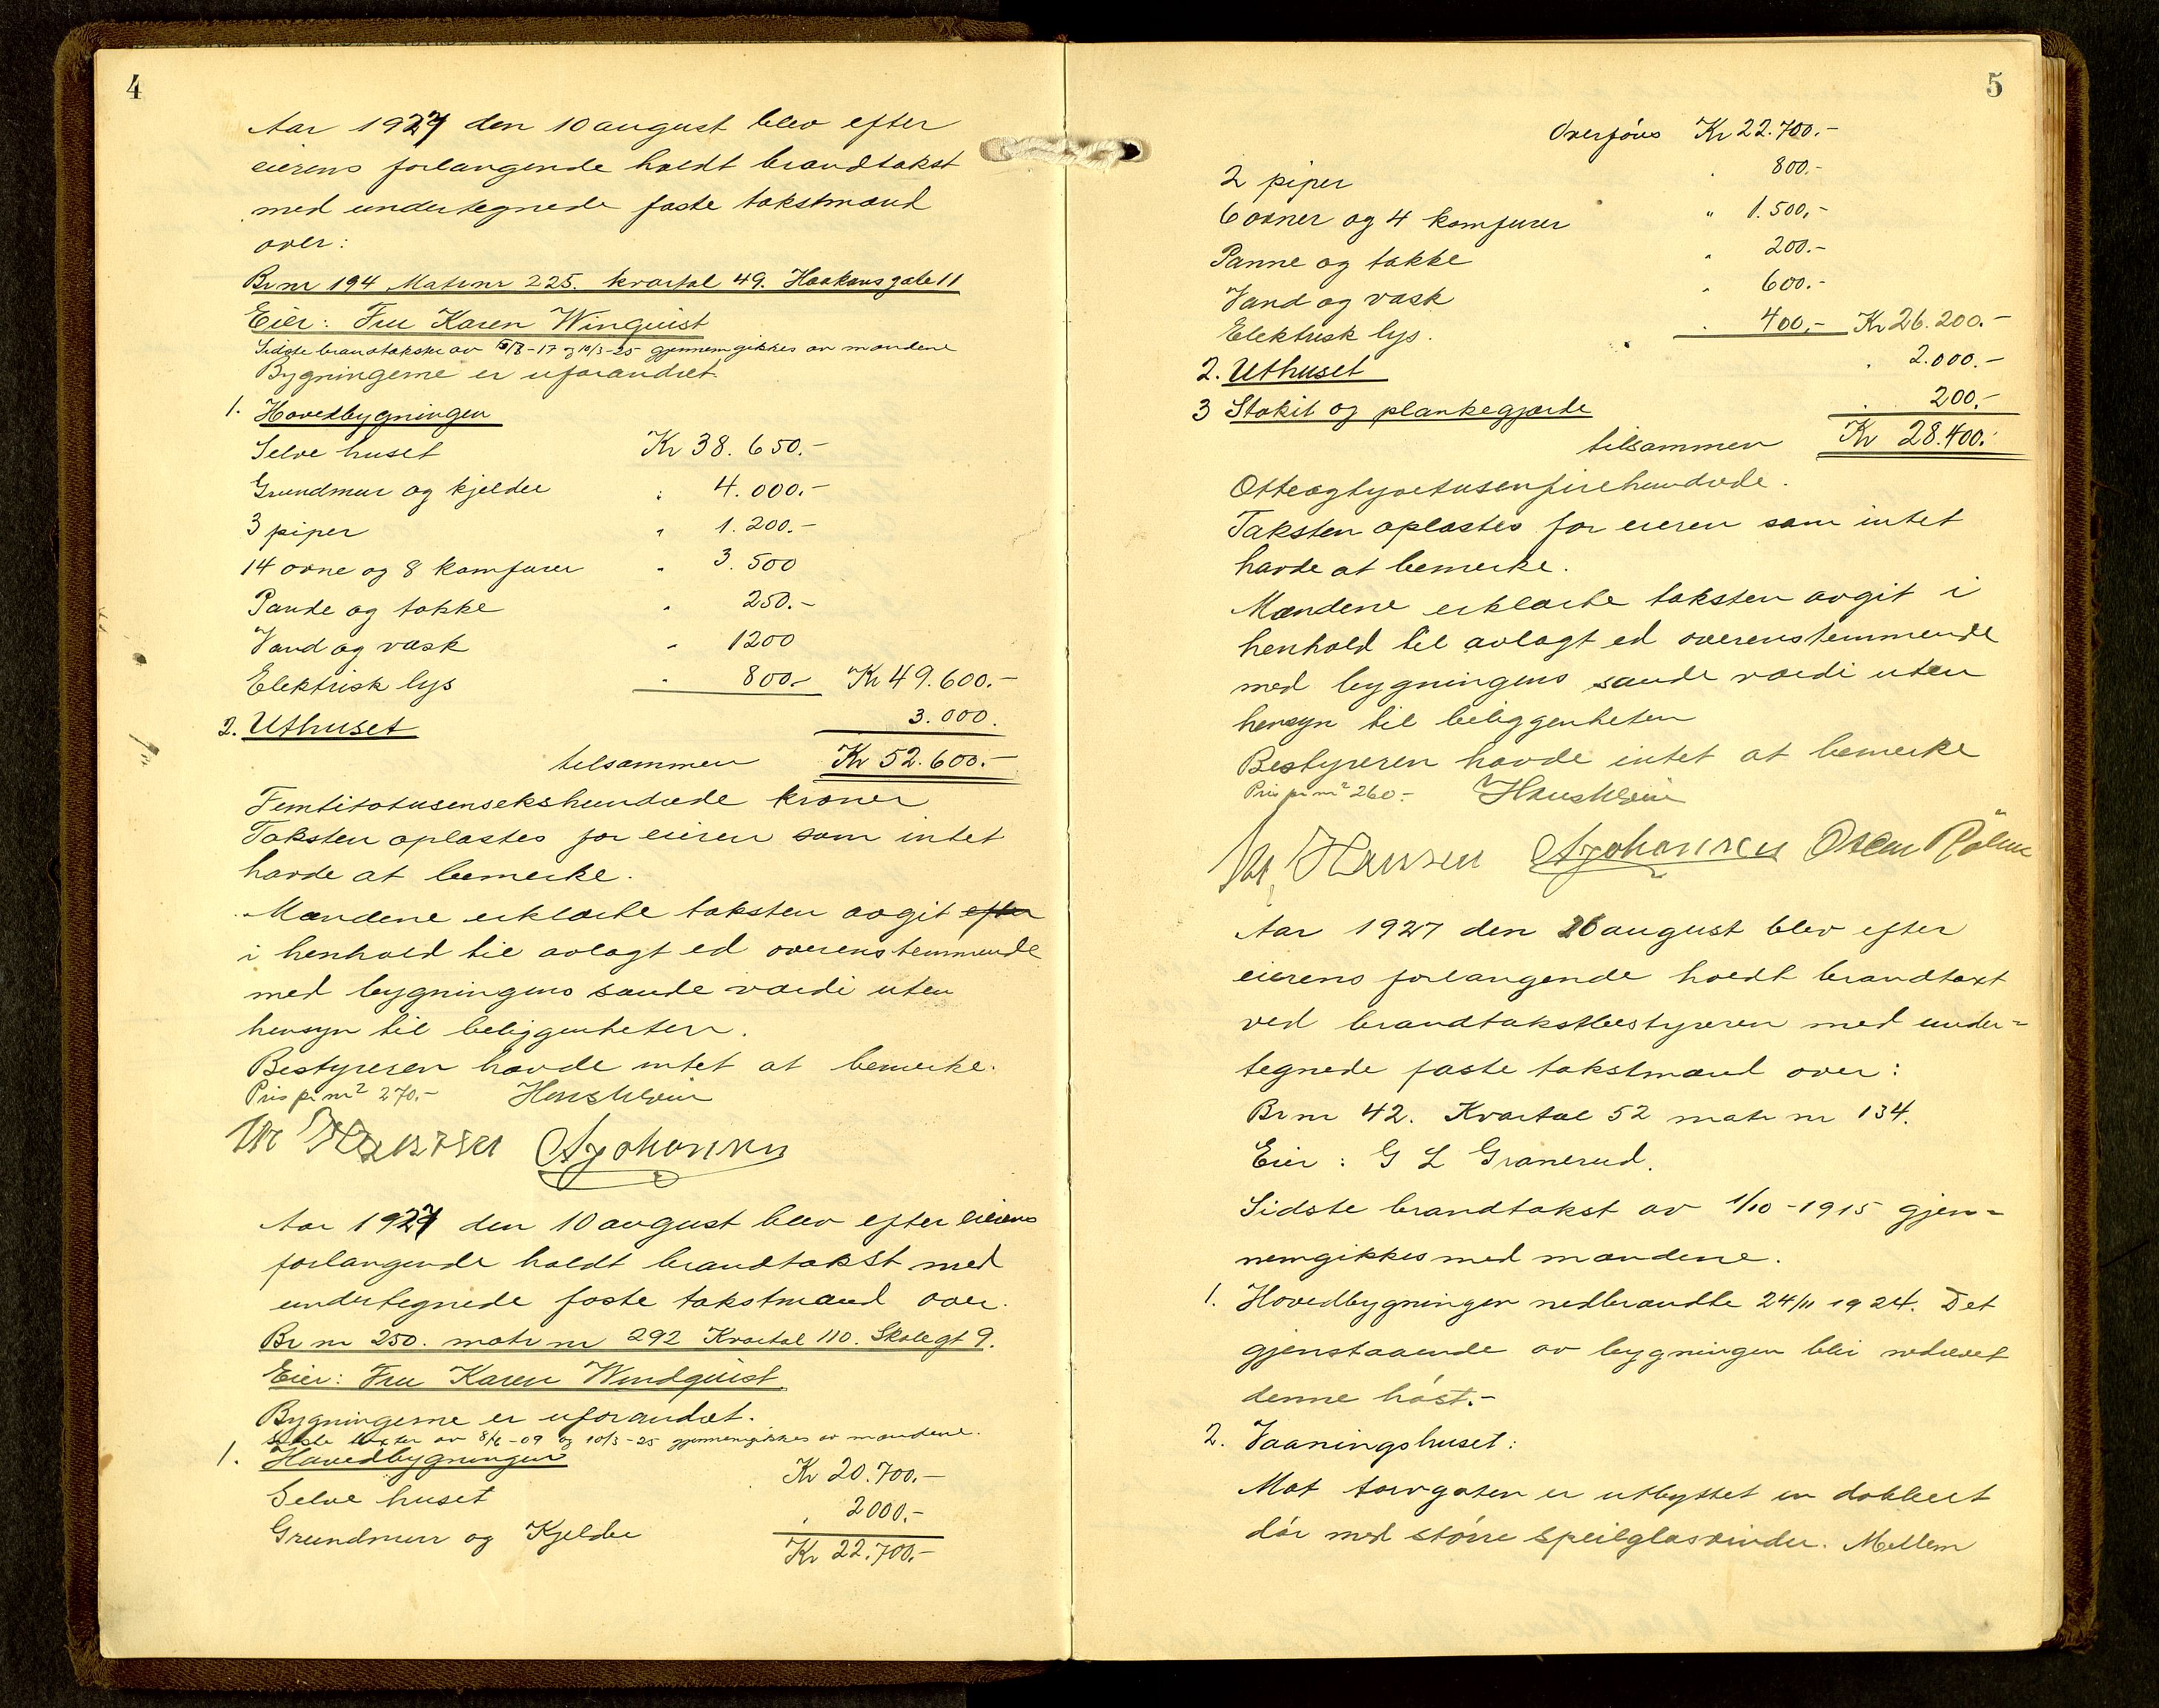 4
Aar 1927 den 10 august blev efter
eierens forlangende holdt brandtakst
med undertegnede faste takstmænd
over:
Br nr 194 Matr nr 225. kvartal 49. Haakonsgate 11
Eier: Fru Karen Winquist
Sidste brandtakster av 8/8-17 og 10/3-25 gjennemgikkes av mændene
Bygningerne er uforandret.
1. Hovedbygningen
Selve huset Kr 38.650.-
Grundmur og kjelder " 4.000.-
3 piper " 1.200.-
14 ovne og 8 komfurer " 3.500
Pande og takke " 250.-
Vand og vask " 1200
Elektrisk lys " 800.- Kr 49.600.-
2. Uthuset 3.000.
tilsammen Kr 52.600.-
Femtitotusensekshundrede kroner
Taksten oplæstes for eieren som intet
havde at bemerke.
Mændene erklærte taksten avgit efter
i henhold til avlagt ed overensstemmende
med bygningens sande værdi uten
hensyn til beliggenheten.
Bestyreren havde intet at bemerke.
Pris pr m² 270.-
Hansen A Johansen
Aar 1927 den 10 august blev efter eierens
forlangende holdt brandtakst med
undertegnede faste takstmænd over.
Br nr 250. matr nr 292 Kvartal 110. Skolegt 9.
Eier: Fru Karen Windquist.
Bygningerne er uforandret.
Sidste taxter av 8/6-09 og 10/3-25 gjennemgikkes av mændene.
1. Hovedbygningen
Selve huset Kr 20.700.-
Grundmur og Kjelder " 2000.-
Kr 22.700.-
5
Overføres Kr 22.700.-
2 piper " 800.-
6 ovner og 4 komfurer " 1.500.-
Panne og takke " 200.-
Vand og vask " 600.-
Elektrisk lys. " 400.- Kr 26.200.-
2. Uthuset " 2.000.-
3 Stakit og plankegjærde " 200.-
tilsammen Kr 28.400.-
Otteogtyvetusenfirehundrede.
Taksten oplæstes for eieren som intet
havde at bemerke.
Mændene erklærte taksten avgit i
henhold til avlagt ed overensstemmende
med bygningens sande værdi uten
hensyn til beliggenheten
Bestyreren havde intet at bemerke
Pris pr m² 260.-
Hansen A Johansen Oscar
Aar 1927 den 26 august blev efter
eierens forlangende holdt brandtaxt
ved brandtakstbestyreren med under-
tegnede faste takstmænd over:
Br nr 42. Kvartal 52 matr nr 134.
Eier: G L Granerud.
Sidste brandtakst av 1/10-1915 gjen-
nemgikkes med mændene.
1. Hovedbygningen nedbrandte 24/11 1924. Det
gjenstaaende av bygningen blir nedrevet
denne høst.-
2. Vaaningshuset:
Mot torvgaten er utbyttet en dobbelt
dør med større speilglasvinder. Mellem